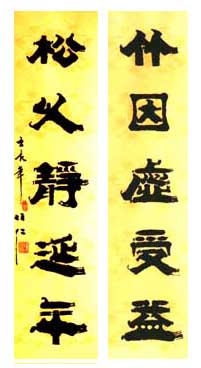 竹因虛受益
松以靜延年
壬辰年